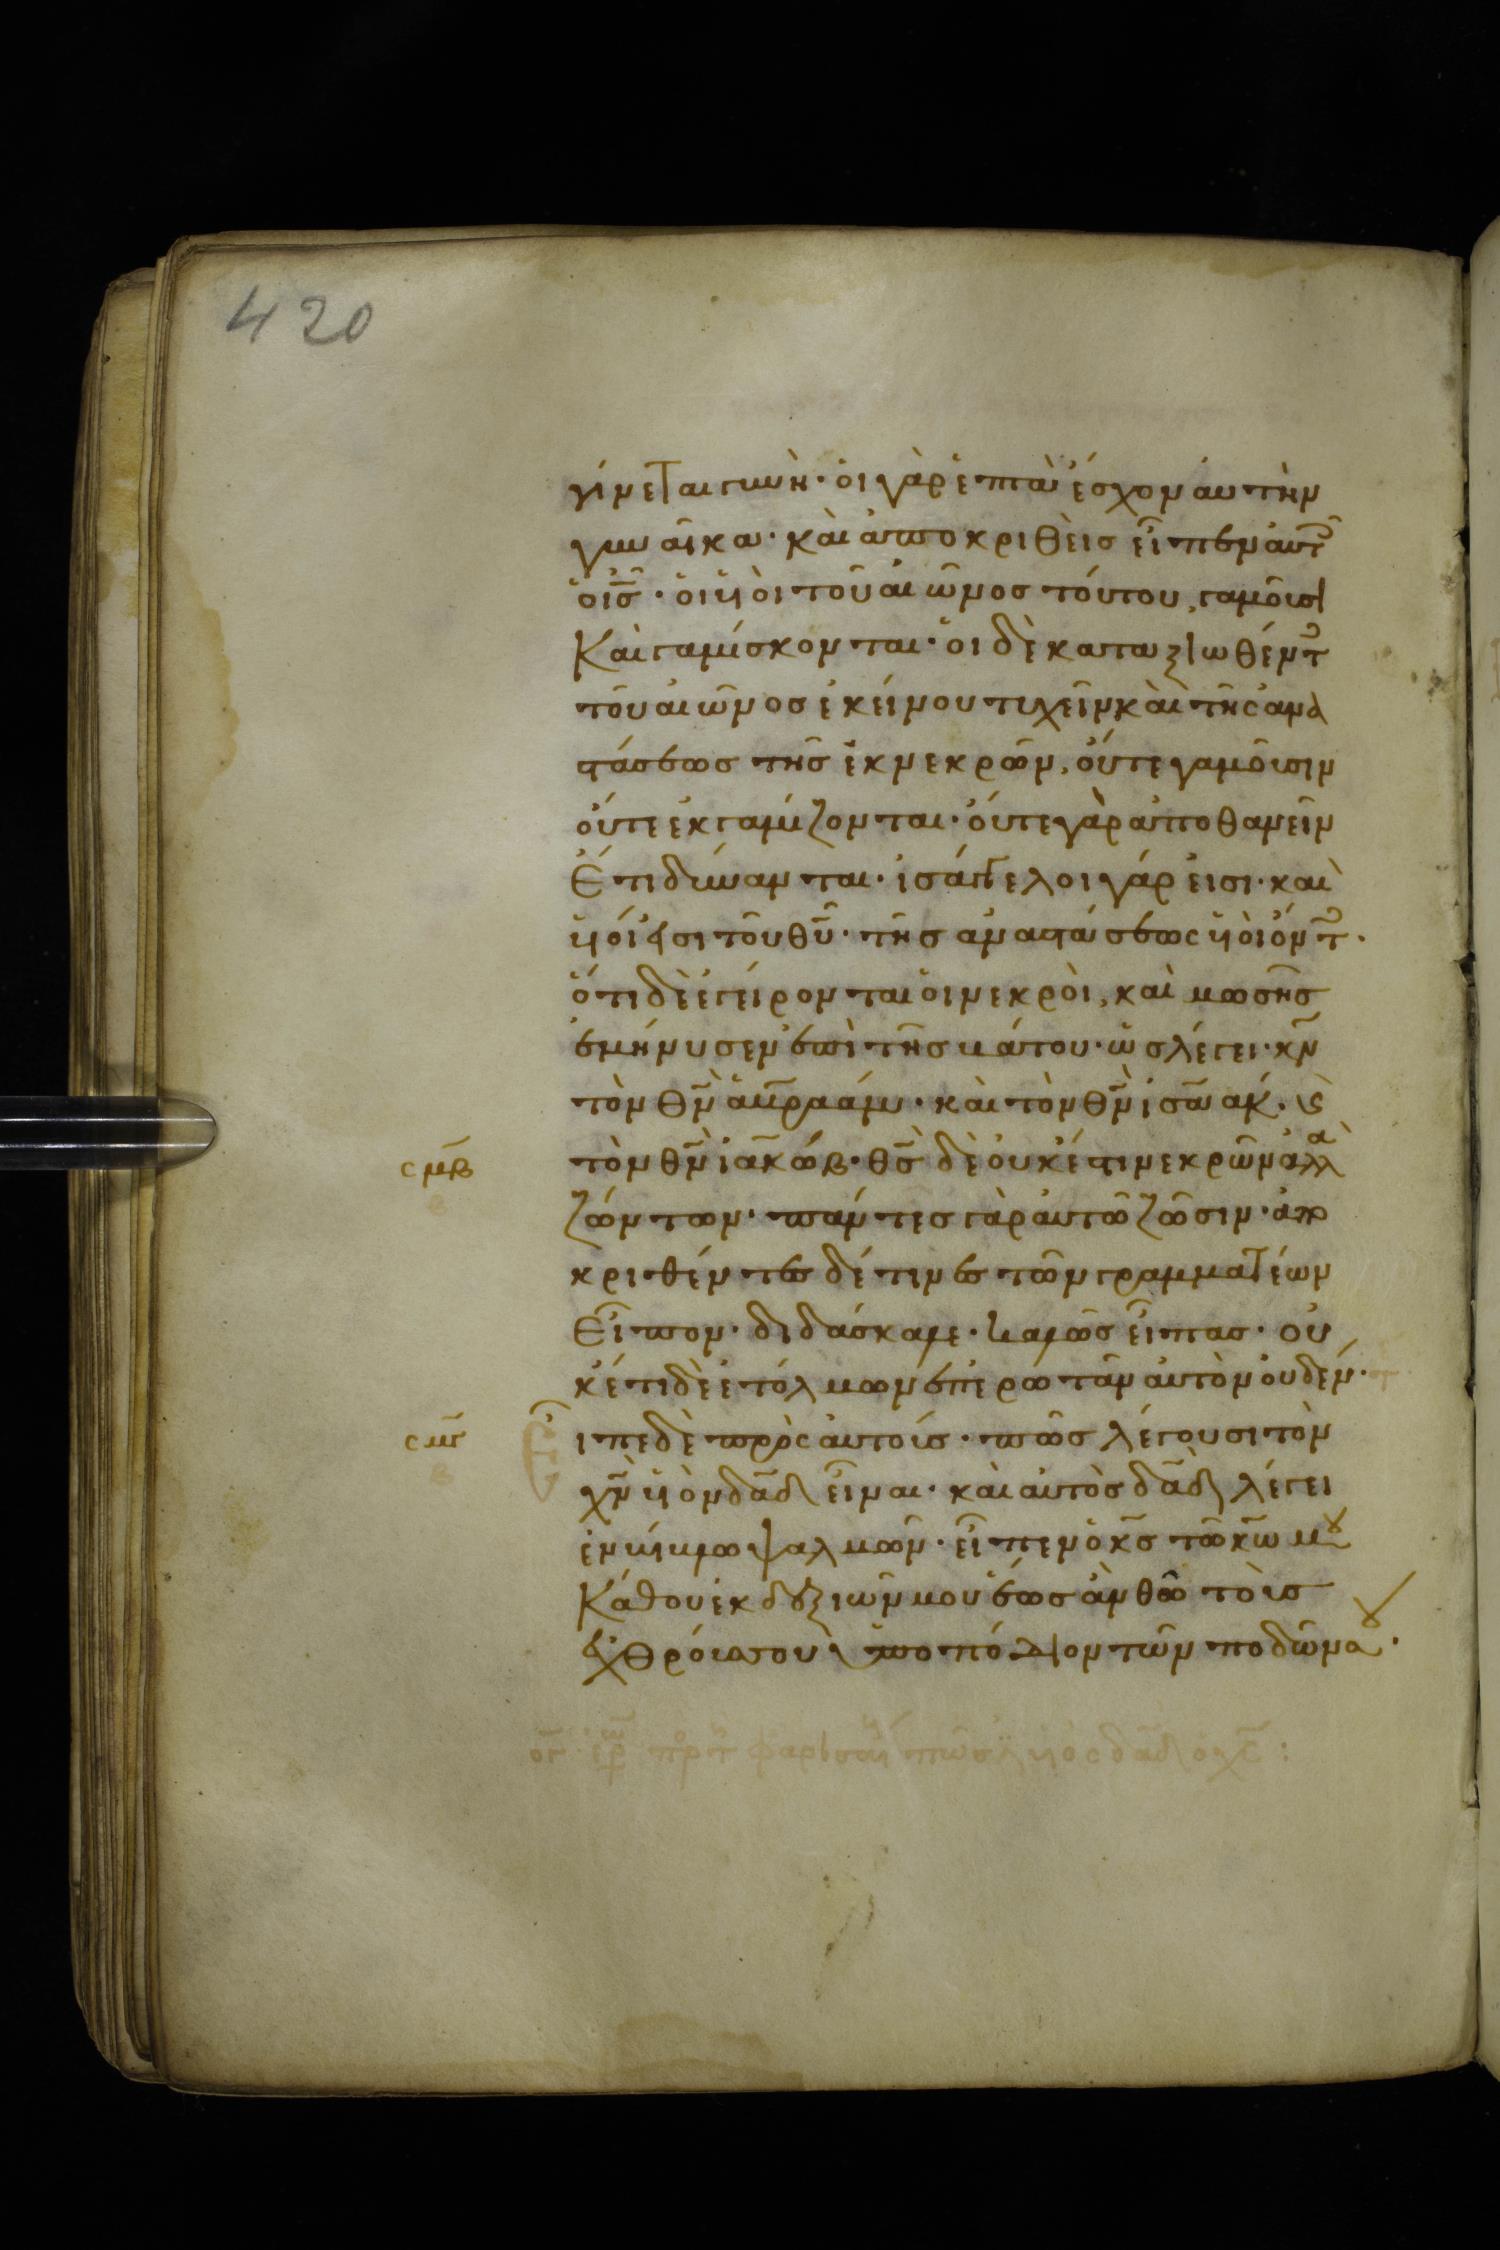 420
γίνεται γυνή· οἱ γὰρ ἑπτὰ ἔσχον αὐτὴν
γυναῖκα· καὶ ἀποκριθεὶς εἶπεν αὐτ
ὁ ις̅· οἱ υἱοὶ τοῦ αἰῶνος τούτου, γαμοῦσι
Καὶ γαμίσκονται· οἱ δὲ καταξιωθέντ
τοῦ αἰῶνος ἐκείνου τυχεῖν καὶ τῆς ἀνα
στάσεως τῆς ἐκ νεκρῶν, οὔτε γαμοῦσιν
οὔτε ἐκγαμίζονται· οὔτε γὰρ ἀποθανεῖν
Ἔτι δύνανται· ἰσάγγελοι γάρ εἰσι· καὶ
υἱοί εἰσι τοῦ θυ̅· τῆς ἀναστάσεως υἱοὶ ὄντ·
ὅτι δὲ ἐγείρονται οἱ νεκροὶ, καὶ μωσῆς
ἐμήνυσεν ἐπὶ τῆς βάτου· ὡς λέγει· κν̅
τὸν θν̅ ἀβραάμ· καὶ τὸν θν̅ ἰσαάκ· κ
σμβ τὸν θν̅ ἰακώβ· θς̅ δὲ οὐκ ἔστι νεκρῶν ἀλλὰ
ζώντων· πάντες γὰρ αὐτῶ ζῶσιν· ἀπο
κριθέντες δέ τινες τῶν γραμματέων
Εἶπον· διδάσκαλε· καλῶς εἶπας· οὐ
κέτι δὲ ἐτόλμων ἐπερωτᾶν αὐτὸν οὐδέν·
σμγ Εἶπε δὲ πρὸς αὐτούς· πῶς λέγουσι τὸν
χν̅ υἱὸν δαδ̅ εἶναι· καὶ αὐτὸς δαδ̅ λέγει
ἐν βίβλω ψαλμῶν· εἶπεν ὁ κς̅ τῶ κω̅ μου
Κάθου ἐκ δεξιῶν μου ἕως ἂν θῶ τοὺς
ἐχθρούς σου ὑποπόδιον τῶν ποδῶν σου·